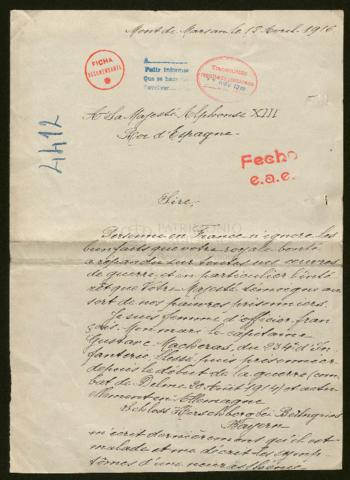 Mont de Marsan le 15 Avril 1916
FICHA
A
Pedir informe
Que se haga
4412
A Sa Majesté Alphonse XIII
Roi d'Espagne
Fecho
e.a.e.
Sire,
Personne en France n'ignore les
bienfaits que votre royale bonté
a répandus sur toutes nos œuvres
de guerre, et en particulier l'inté
rêt que Votre Majesté témoigne au
sort de nos pauvres prisonniers.
Je suis femme d'officier fran
çais. Mon mari le capitaine
Gustave Macheras, du 234e d'In
fanterie, blessé puis prisonnier
depuis le début de la guerre (com
bat de Delme 20 Août 1914) est actu
ellement en Allemagne
Schloss Hirschberg bei Beilngries
Bayern
m'écrit dernièrement qu'il est
malade et me décrit les symp
tômes d'une neurasthénie